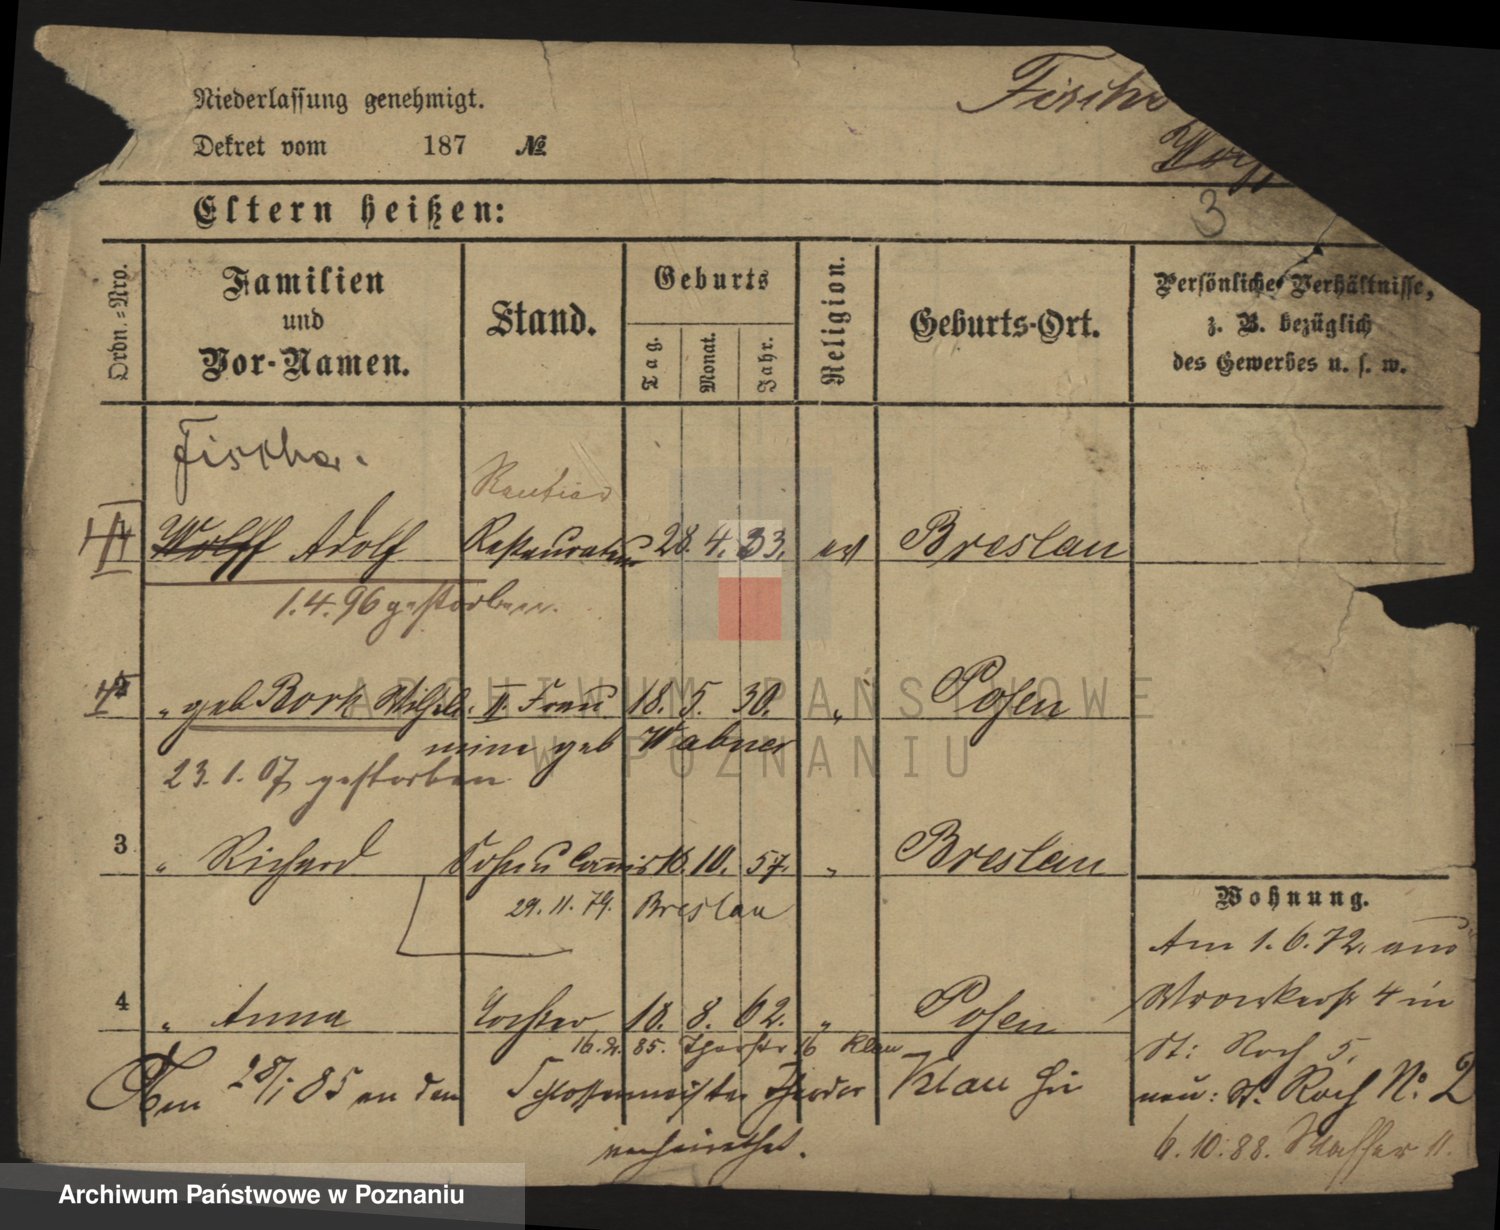 Niederlassung genehmigt.
Dekret vom 187 №
Fische
Wolff
3
Eltern heißen:
Ordn.=Nro.
Familien
und
Vor-Namen.
Stand.
Geburts
Tag.
Monat.
Jahr.
Religion.
Geburts-Ort.
Persönliche Verhältnisse,
z. B. bezüglich
des Gewerbes u. s. w.
Fischer.
Rentier
Wolff Adolf Restaurateur 28. 4. 33. ev Breslau
1.4.96 gestorben.
" geb Bork Wilhel. II. Frau 18. 5. 30. " Posen
mine geb Wabner
23.1.07 gestorben
3 " Richard Sohn Commis 16. 10. 57. " Breslau
29.11.79. Breslau
Wohnung.
Am 1.6.72. aus
Wronkerstr 4 in
St: Roch 5.
neu: St. Roch No. 2
6.10.88.
4 " Anna Tochter 18. 8. 62. " Posen
85. 16 Klau
Am 28/1 85 an den Schlossermeister Theodor Klau hier
verheirathet.
ARCHIWUM PAŃSTWOWE
W POZNANIU
Archiwum Państwowe w Poznaniu